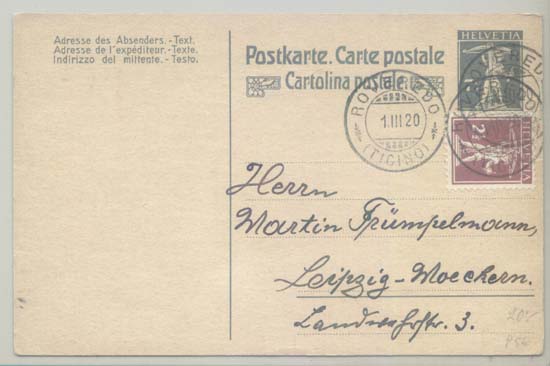 Adresse des Absenders.-Text.
Adresse de l'expéditeur.-Texte.
Indirizzo del mittente.-Testo.
Postkarte. Carte postale
Cartolina postale.
HELVETIA
ROVEREDO
1.III 20
(TICINO)
2½
HELVETIA
Herrn
Martin Trümpelmann,
Leipzig-Moeckern.
Landwehrstr. 3.